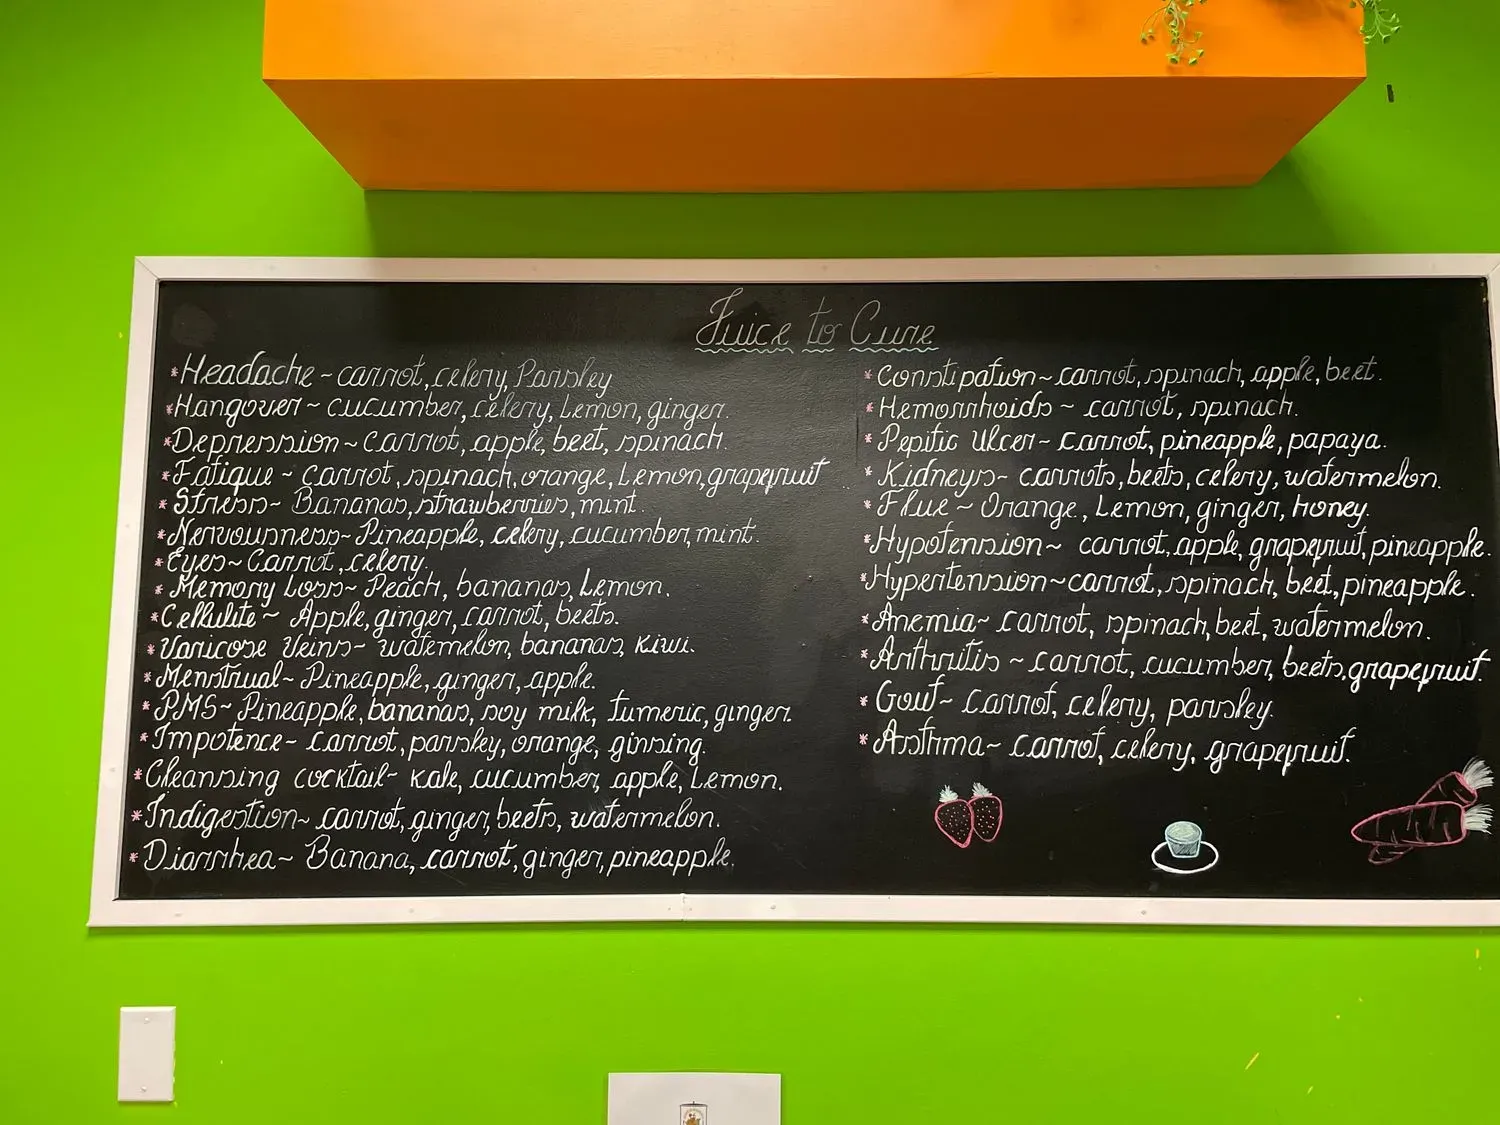 Juice to Cure
*Headache~ carrot, celery, Parsley
*Hangover~ cucumber, celery, Lemon, ginger.
*Depression~ carrot, apple, beet, spinach.
*Fatique~ carrot, spinach, orange, Lemon, grapefruit
*Stress~ Bananas, strawberries, mint.
*Nervousness~ Pineapple, celery, cucumber, mint.
*Eyes~ Carrot, celery.
*Memory Loss~ Peach, bananas, Lemon.
*Cellulite~ Apple, ginger, carrot, beets.
*Varicose Veins~ watemelon, bananas, kiwi.
*Menstrual~ Pineapple, ginger, apple.
*PMS~ Pineapple, bananas, soy milk, tumeric, ginger.
*Impotence~ carrot, parsley, orange, ginsing.
*Cleansing cocktail~ kale, cucumber, apple, Lemon.
*Indigestion~ carrot, ginger, beets, watermelon.
*Diarrhea~ Banana, carrot, ginger, pineapple.
*Constipation~ carrot, spinach, apple, beet.
*Hemorrhoids~ carrot, spinach.
*Pepitic Ulcer~ carrot, pineapple, papaya.
*Kidneys~ carrots, beets, celery, watermelon.
*Flue~ Orange, Lemon, ginger, honey.
*Hypotension~ carrot, apple, grapefruit, pineapple.
*Hypertension~ carrot, spinach, beet, pineapple.
*Anemia~ carrot, spinach, beet, watermelon.
*Arthritis~ carrot, cucumber, beets, grapefruit.
*Gout~ Carrot, celery, parsley.
*Asthma~ carrot, celery, grapefruit.